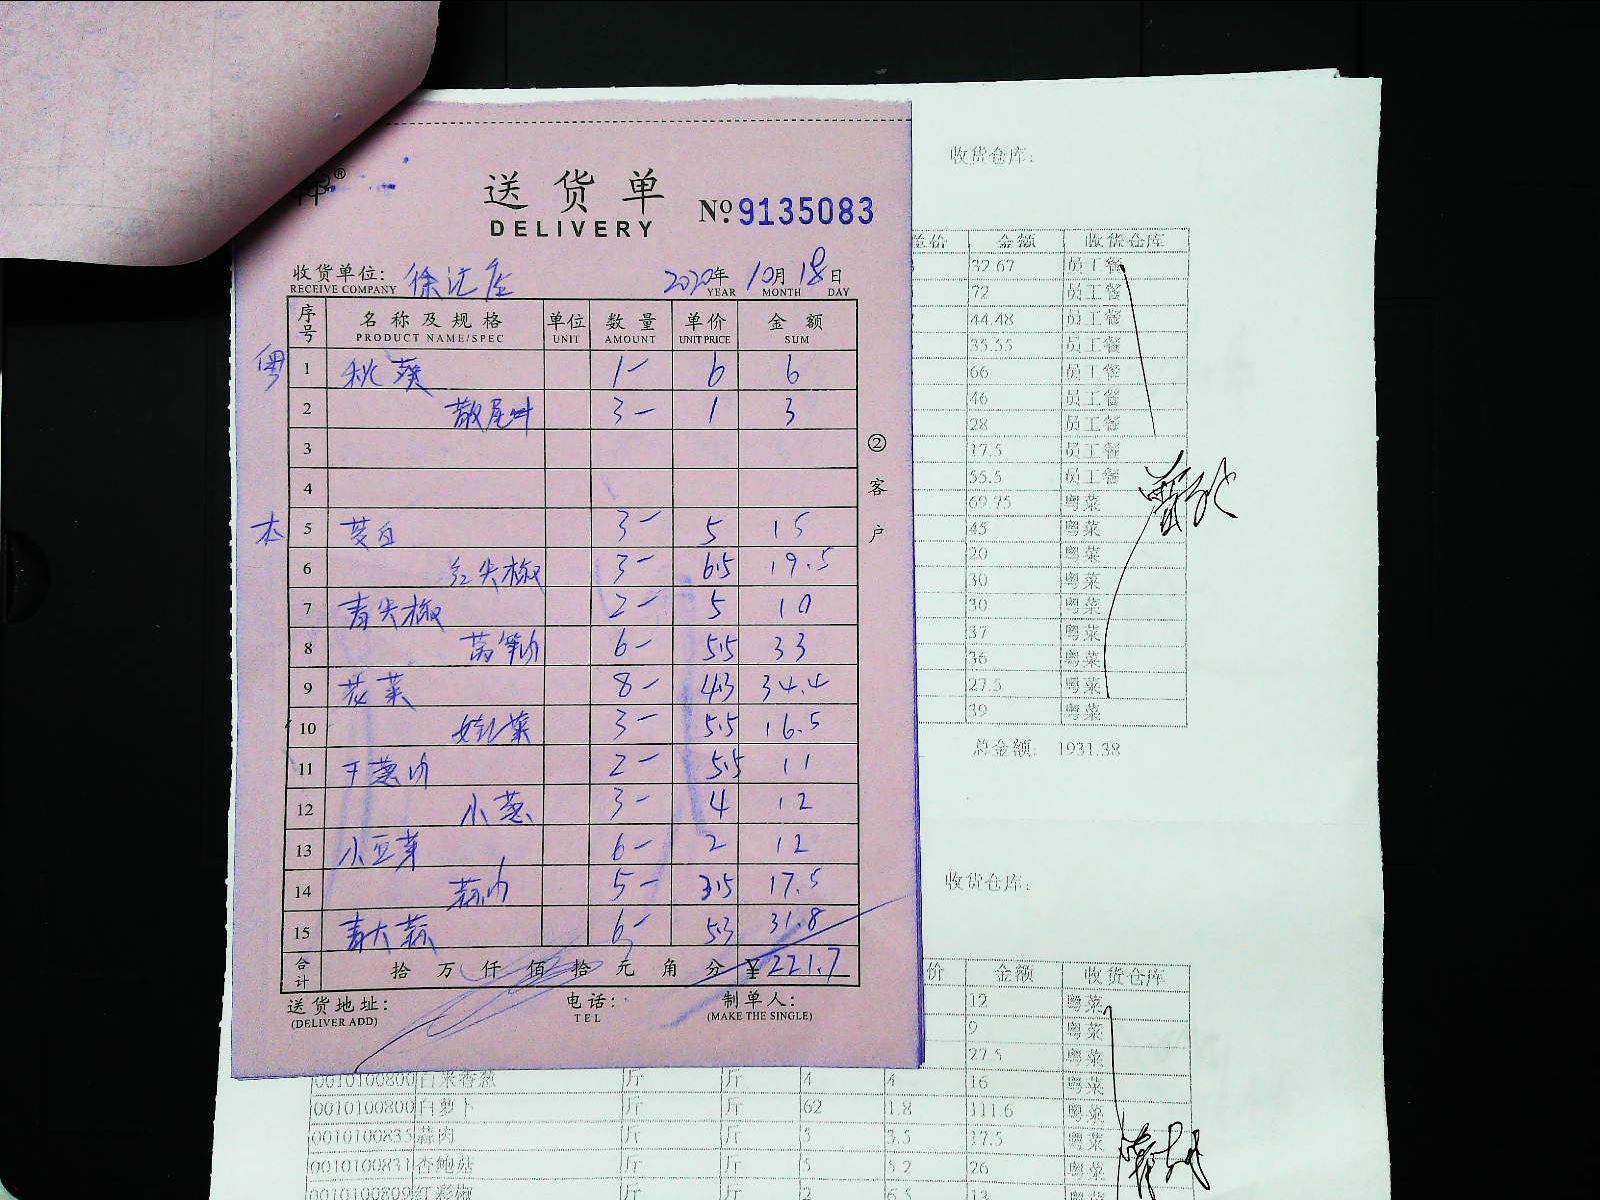 送货单
DELIVERY
№ 9135083
收货单位: 徐汇店 2020年 10月 18日
RECEIVE COMPANY YEAR MONTH DAY
序号 名称及规格 单位 数量 单价 金额
PRODUCT NAME/SPEC UNIT AMOUNT UNIT PRICE SUM
粤 1 秋葵 1- 6 6
2 散尾叶 3- 1 3
3
4
本 5 茭白 3- 5 15
6 红尖椒 3- 6.5 19.5
7 青尖椒 2- 5 10
8 莴笋肉 6- 5.5 33
9 花菜 8- 4.3 34.4
10 娃娃菜 3- 5.5 16.5
11 干葱肉 2- 5.5 11
12 小葱 3- 4 12
13 小豆芽 6- 2 12
14 蒜肉 5- 3.5 17.5
15 青大蒜 6- 5.3 31.8
合计 拾 万 仟 佰 拾 元 角 分 ¥221.7
送货地址: 电话: 制单人:
(DELIVER ADD) TEL (MAKE THE SINGLE)
② 客户
收货仓库:
单价 金额 收货仓库
32.67 员工餐
72 员工餐
44.48 员工餐
35.55 员工餐
66 员工餐
46 员工餐
28 员工餐
17.5 员工餐
55.5 员工餐
69.75 粤菜
45 粤菜
20 粤菜
30 粤菜
30 粤菜
37 粤菜
36 粤菜
27.5 粤菜
39 粤菜
总金额: 1931.38
收货仓库:
价 金额 收货仓库
12 粤菜
9 粤菜
27.5 粤菜
0010100800 白米香葱 斤 斤 4 4 16 粤菜
0010100800 白萝卜 斤 斤 62 1.8 111.6 粤菜
0010100835 蒜肉 斤 斤 5 3.5 17.5 粤菜
0010100831 杏鲍菇 斤 斤 5 5.2 26 粤菜
0010100809 红彩椒 斤 斤 2 6.5 13 粤菜